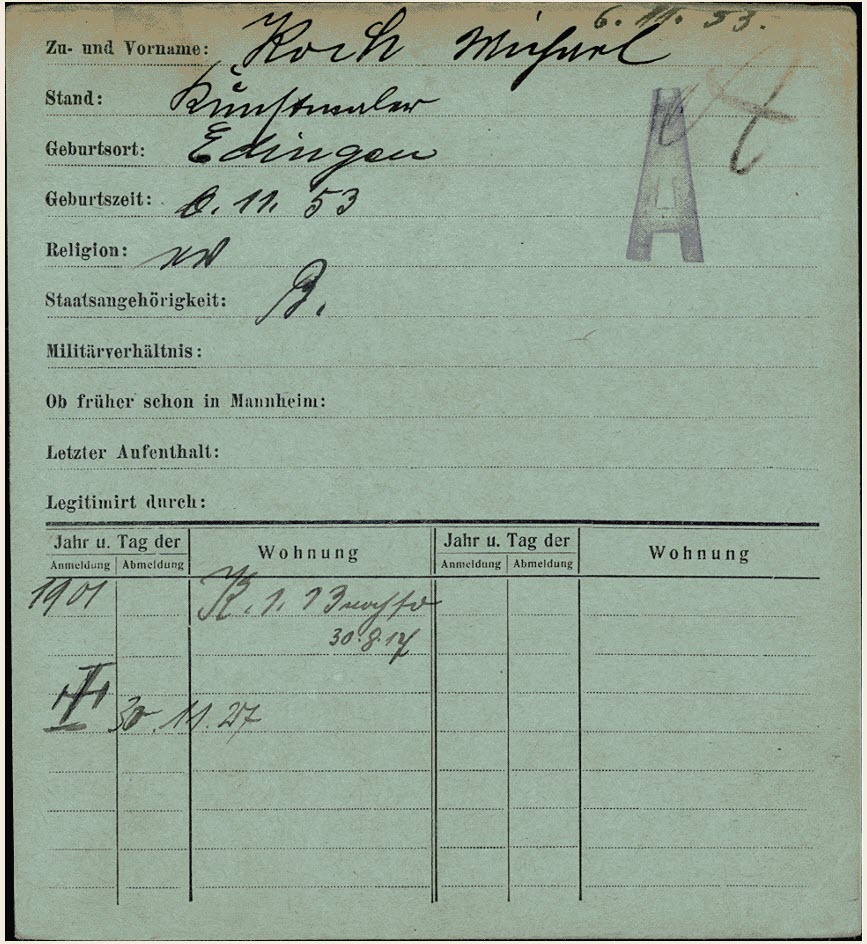 6. 11. 53.
Zu- und Vorname: Koch Michael
Stand: Kunstmaler
Geburtsort: Edingen
Geburtszeit: 6. 11. 53
Religion: ev
Staatsangehörigkeit: B.
Militärverhältnis:
Ob früher schon in Mannheim:
Letzter Aufenthalt:
Legitimirt durch:
Jahr u. Tag der Wohnung Jahr u. Tag der Wohnung
Anmeldung Abmeldung Anmeldung Abmeldung
A
1901 K. 1. 13
30.8.17
30.11.27